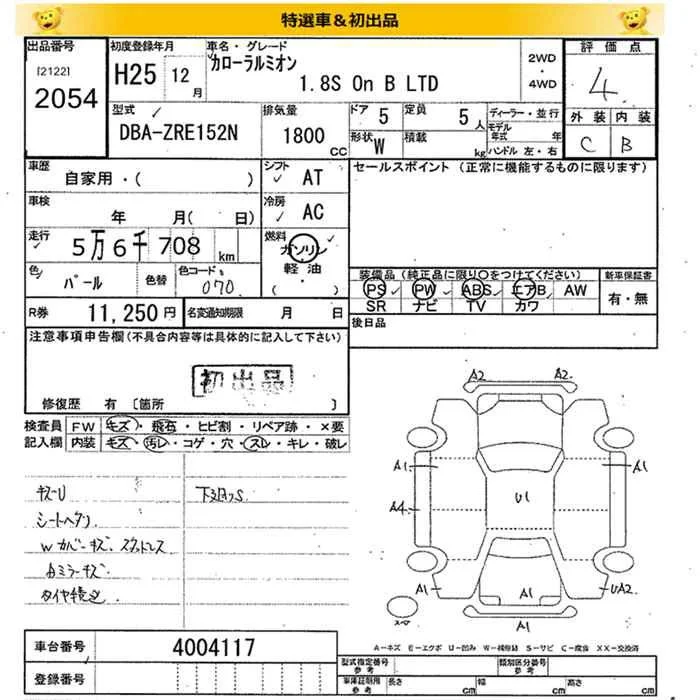 特選車&初出品
出品番号
[2122]
2054
初度登録年月
H25 12月
車名・グレード
カローラルミオン
1.8S On B LTD
2WD
・
4WD
評価点
4
外装 内装
C B
型式
DBA-ZRE152N
排気量
1800 CC
ドア 5
定員 5人
形状 W
積載 kg
ディーラー・並行
モデル年式 年
ハンドル 左・右
車歴
自家用・( )
シフト
AT
セールスポイント (正常に機能するものに限ります)
車検
年 月( 日)
冷房
AC
走行
5万6千708 km
燃料
ガソリン
軽油
・
( )
色
パール
色替
色コード
070
装備品 (純正品に限り〇をつけてください)
PS PW ABS エアB AW
SR ナビ TV カワ
新車保証書
有・無
R券 11,250円
名変通知期限 月 日
後日品
注意事項申告欄 (不具合内容等は具体的に記入して下さい)
初出品
修復歴 有 [箇所 ]
検査員
記入欄
FW キズ・飛石・ヒビ割・リペア跡・×要
内装 キズ・汚レ・コゲ・穴・スレ・キレ・破レ
キズU
シートヘタリ
Wカバーキズ
ミラーキズ
下廻りS
A2 A2
A1 A1
A4
U1
A1 A1 UA2
A1
スペア
A−キズ E−エクボ U−凹み W−補修跡 S−サビ C−腐食 XX−交換済
車台番号 4004117
登録番号
型式指定番号
参考
類別区分番号
参考
車庫証明用
参考
長さ cm
幅 cm
高さ cm